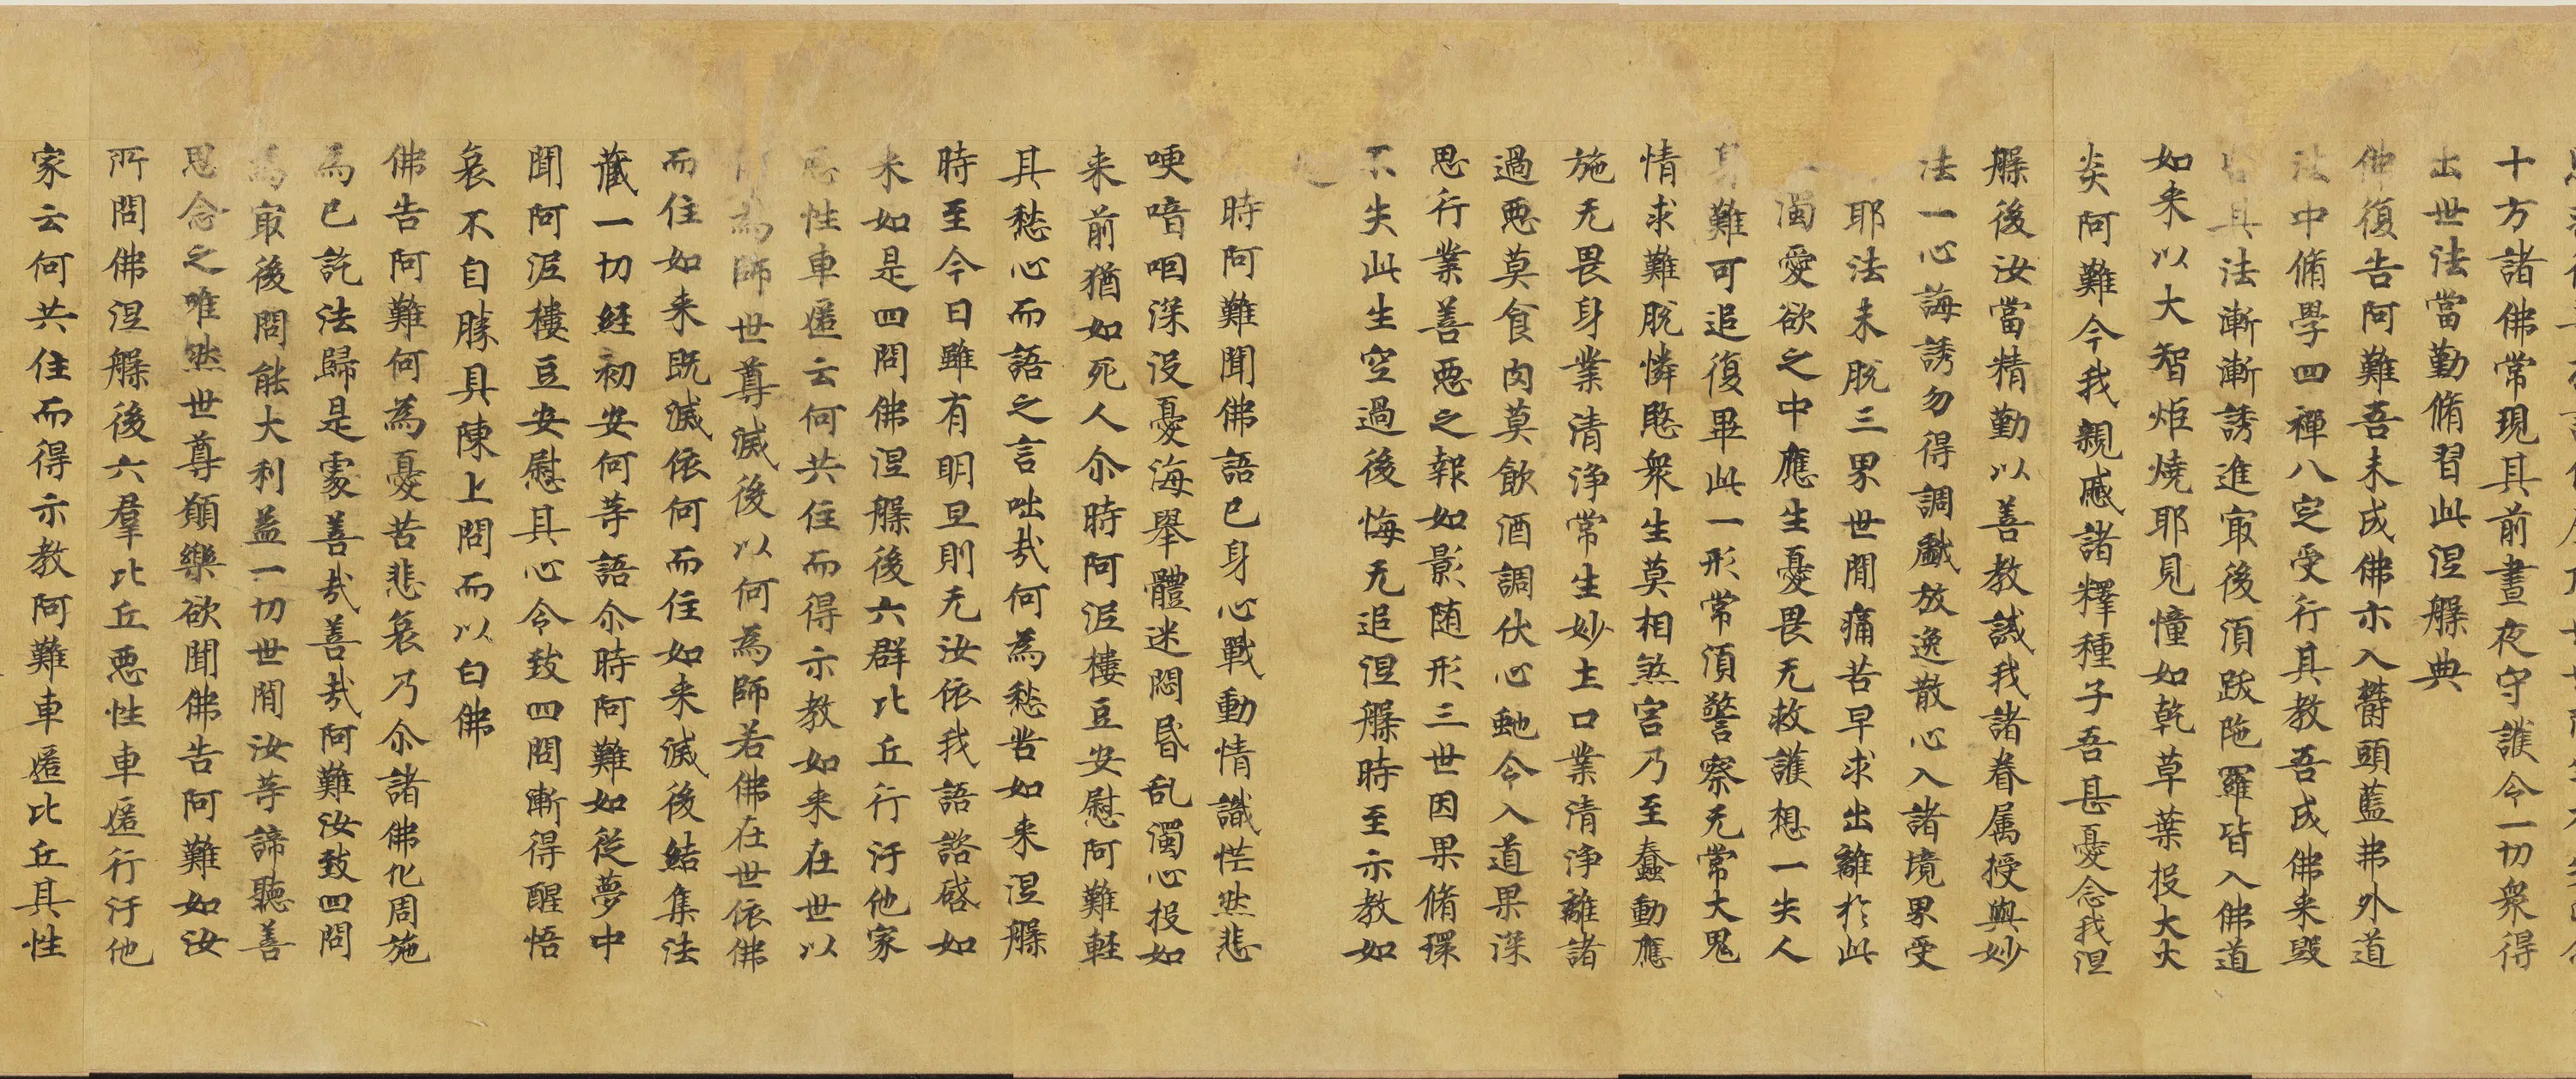 十方諸佛常現其前晝夜守護令一切衆得
出世法當勤脩習此涅槃典
佛復告阿難吾未成佛亦入欝頭藍弗外道
法中脩學四禪八定受行其教吾成佛来毁
呰其法漸漸誘進㝡後湏跋陁羅皆入佛道
如来以大智炬燒耶見幢如乾草葉投大火
炎阿難今我親戚諸釋種子吾甚憂念我涅
槃後汝當精勤以善教誡我諸眷属授與妙
法一心誨誘勿得調戲放逸散心入諸境界受
耶法未脱三界世間痛苦早求出離於此
濁愛欲之中應生憂畏无救護想一失人
身難可追復畢此一形常湏警察无常大鬼
情求難脱憐愍衆生莫相煞害乃至蠢動應
施无畏身業清淨常生妙土口業清淨離諸
過惡莫食肉莫飲酒調伏心虵令入道果深
思行業善惡之報如影随形三世因果脩環
不失此生空過後悔无追涅槃時至示教如
是
時阿難聞佛語已身心戰動情識恾然悲
哽喑咽深没憂海舉體迷悶昬乱濁心投如
来前猶如死人尒時阿泥樓豆安慰阿難軽
其愁心而語之言咄㢤何為愁苦如来涅槃
時至今日雖有明旦則无汝依我語諮啓如
来如是四問佛涅槃後六群比丘行汙他家
惡性車匿云何共住而得示教如来在世以
佛為師世尊滅後以何為師若佛在世依佛
而住如来既滅依何而住如来滅後結集法
藏一切經初安何等語尒時阿難如從夢中
聞阿泥樓豆安慰其心令致四問漸得醒悟
哀不自勝具陳上問而以白佛
佛告阿難何為憂苦悲哀乃尒諸佛化周施
為已訖法歸是䖏善㢤善㢤阿難汝致四問
為㝡後問能大利益一切世間汝等諦聽善
思念之唯然世尊願樂欲聞佛告阿難如汝
所問佛涅槃後六羣比丘惡性車匿行汙他
家云何共住而得示教阿難車匿比丘其性